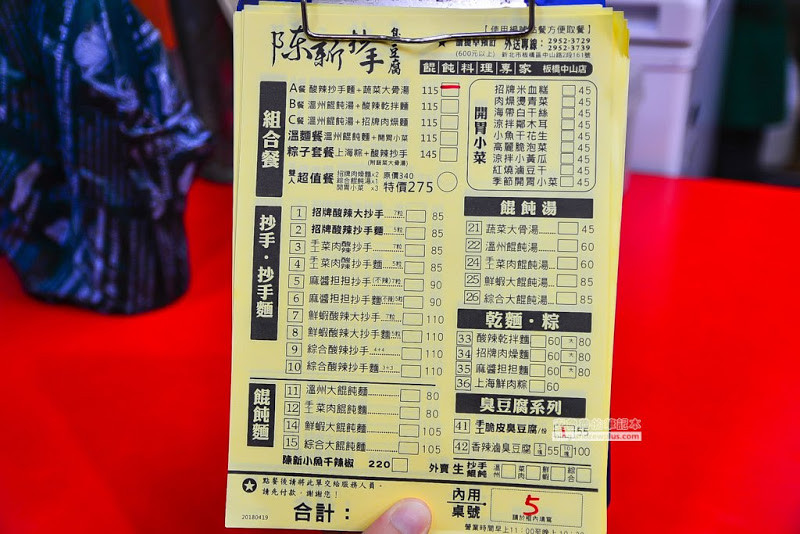 陳新抄手 臭豆腐
【使用編號點餐方便取餐】
外送專線: 2952-3729
(600元以上) 2952-3739
新北市板橋區中山路2段161號
餛飩料理專家 板橋中山店
組合餐
A餐 酸辣抄手麵+蔬菜大骨湯 115
B餐 溫州餛飩湯+酸辣乾拌麵 115
C餐 溫州餛飩湯+招牌肉燥麵 115
溫麵餐 溫州餛飩麵+開胃小菜 115
粽子套餐 上海粽+酸辣抄手 145
(附蔬菜大骨湯)
雙人超值餐 招牌肉燥麵x2 綜合餛飩湯x1 開胃小菜x3 原價340 特價275
開胃小菜
招牌米血糕 45
肉燥燙青菜 45
海帶白干絲 45
涼拌鄰木耳 45
小魚干花生 45
高麗脆泡菜 45
涼拌小黃瓜 45
紅燒滷豆干 45
季節開胃小菜 45
抄手・抄手麵
1 招牌酸辣大抄手...7粒 85
2 招牌酸辣抄手麵...5粒 85
3 手工菜肉酸辣抄手...7粒 85
4 手工菜肉酸辣抄手麵...5粒 85
5 麻醬担担抄手(不辣)7粒 90
6 麻醬担担抄手麵(不辣)5粒 90
7 鮮蝦酸辣大抄手...7粒 110
8 鮮蝦酸辣大抄手麵5粒 110
9 綜合酸辣抄手 4+4 110
10 綜合酸辣抄手麵3+3 110
餛飩湯
21 蔬菜大骨湯 45
22 溫州餛飩湯 60
24 手工菜肉餛飩湯 60
25 鮮蝦大餛飩湯 85
26 綜合大餛飩湯 85
乾麵・粽
33 酸辣乾拌麵 60 大 80
34 招牌肉燥麵 60 大 80
35 麻醬担担麵 60 大 80
36 上海鮮肉粽 60
餛飩麵
11 溫州大餛飩麵 80
12 手工菜肉餛飩麵 80
14 鮮蝦大餛飩麵 105
15 綜合大餛飩麵 105
陳新小魚干辣椒 220
臭豆腐系列
41 手工脆皮臭豆腐/份 55
42 香辣滷臭豆腐 55 100
外賣 生 抄手 餛飩 溫州 菜肉 鮮蝦 綜合
點餐後請將此單交給服務人員。
請先付款，謝謝您！
20180419
合計：
內用桌號 5
請於框內填寫
營業時間早上11:00至晚上10:00